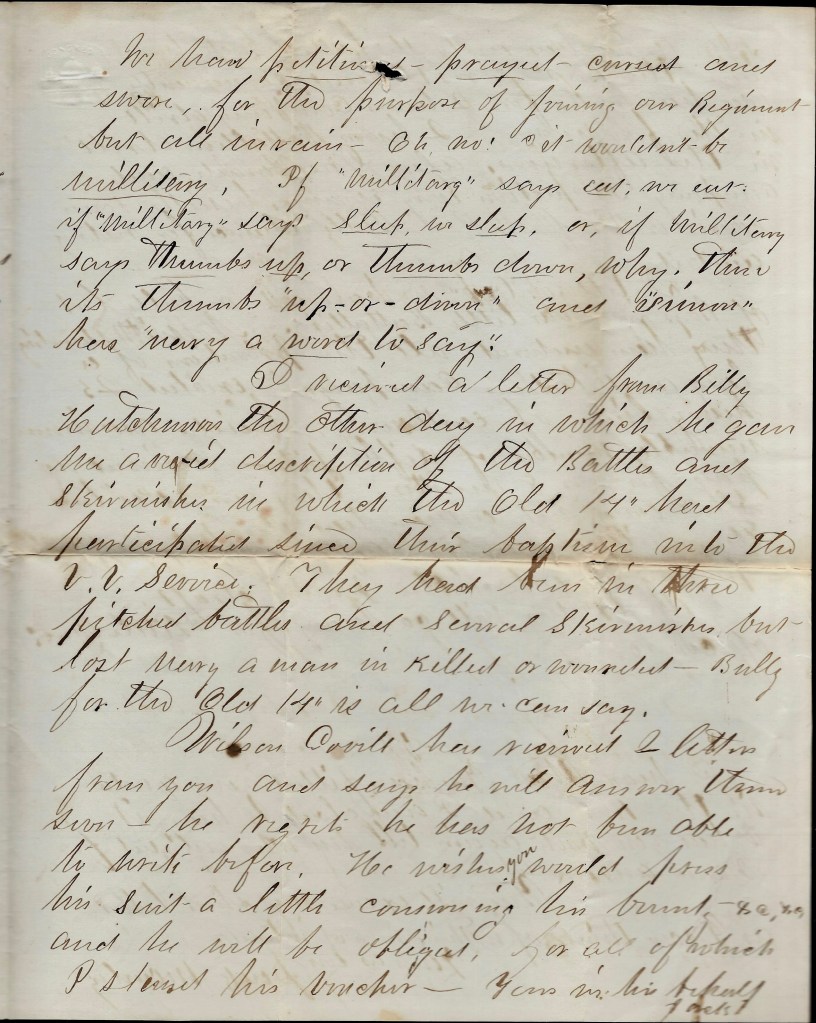 We have petitioned - prayed - cursed and
swore, for the purpose of joining our Regiment
but all in vain - Oh, no! it wouldn't be
millitary, If "Millitary" says eat, we eat.
if "Millitary" says sleep, we sleep, or, if Millitary
says thumbs up, or thumbs down, why, then
its thumbs "up-or-down" and "Simon"
has "nary a word to say".
I recieved a letter from Billy
Hutchinson the other day in which he gave
me a vivid discription of the Battles and
Skirmishes in which the Old 14" had
participated since their baptism into the
V. V. Service. They had been in three
pitched battles and several Skirmishes but
lost nary a man in killed or wounded - Bully
for the Old 14" is all we can say.
Wilson Covill has recieved 2 letters
from you and says he will answer them
soon - he regrets he has not been able
to write before. He wishes you would press
his suit a little concerning his bount, - &c, &c,
and he will be obliged, for all of which
I stand his voucher - Yours in his behalf
Jack